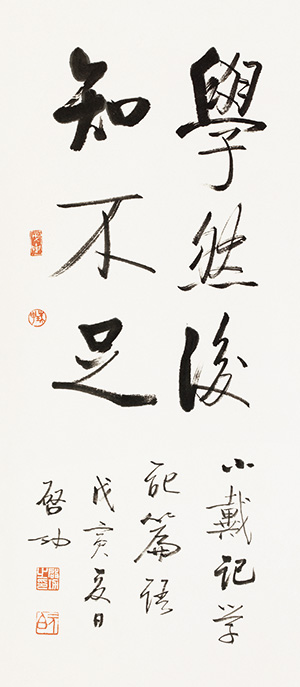 學然後
知不足
小戴記学
記篇語
戊寅夏日
啓功